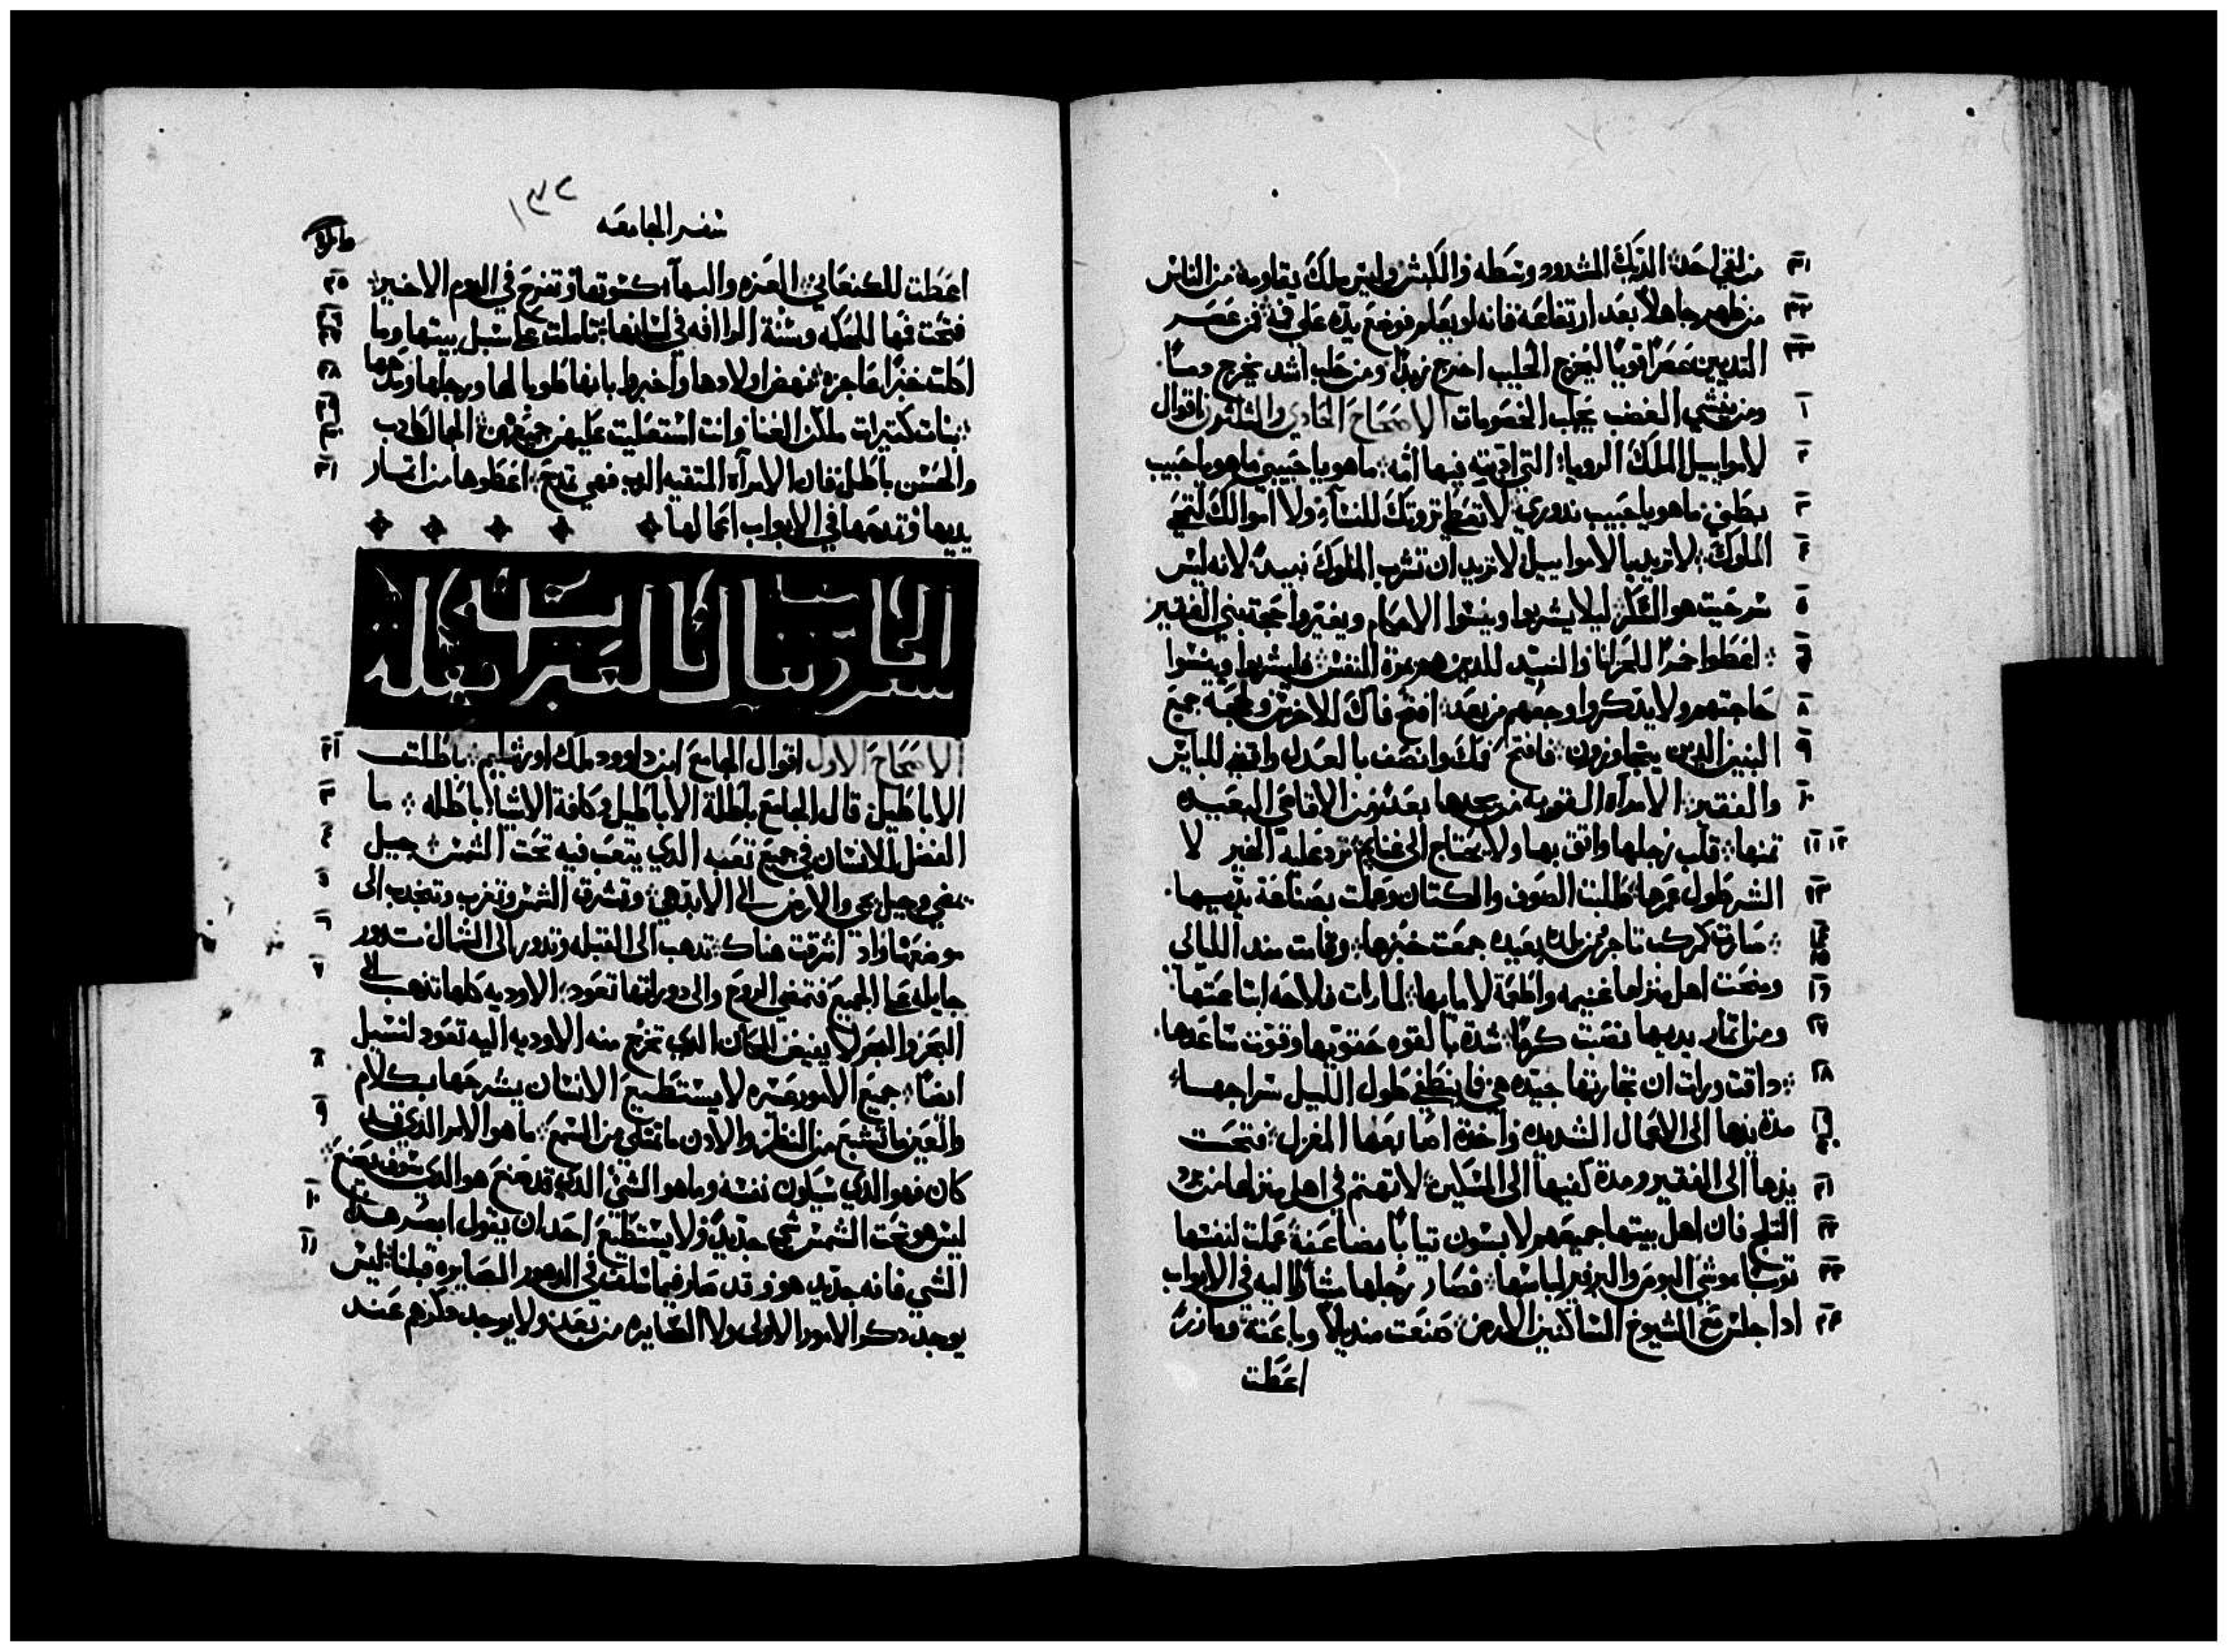 من لقي احد الديك المشدود وسطه والكبش وليس ملك يقاومه من الناس ٣١
من ظهر جاهلاً بعد ارتفاعه فانه لو يعلم فوضع يده علي فمه فمن عصر ٣٢
التديين عصراً قوياً ليخرج الحليب اخرج زبداً ومن حلب اشد يخرج دماً ٣٣
ومن ينشي الغضب يجلب الخصومات الاصحاح الحادي والثلثون اقوال ١
لاموابيل الملك الرويا التي ادبته فيها امه ما هو يا حبيبي ما هو يا حبيب ٢
بطني ما هو يا حبيب ندوري لا تعطي تروتك للنساء ولا اموالك لتمحي ٣
الملوك لا تريد يا لاموابيل لا تريد ان تشرب الملوك نبيد لانه ليس ٤
سر حيت هو السكر ليلا يشربوا وينسوا الاحكام ويغيروا حجة بني الفقير ٥
اعطوا خمراً للحزانا والنبيد للدين هم بمرة النفس فليشربوا وينسوا ٦
حاجتهم ولا يدكروا وجعهم من بعد افتح فاك للاخرس ولحجة جميع ٨
البنين الدين يتجاوزون فافتح فمك وانصف بالعدل واقض للبايس ٩
والفقير الامرآه القويه من يجدها بعد من الاقاصي البعيده ١٠
تمنها قلب رجلها واثق بها ولا يحتاج الي غنايم ترد عليه الخير لا ١١ ١٢
الشر طول عمرها طلبت الصوف والكتان وعملت بصناعة يديها ١٣
صارت كمركب تاجر من بلد بعيد جمعت خبزها وقامت مند الليالي ١٤ ١٥
ومنحت اهل منزلها غنيمه واطعمة لامايها لما رات فلاحه ابتاعتها ١٦
ومن اتمار يديها نصبت كرماً شدة بالقوه حقويها وقوت ساعدها ١٧
داقت ورات ان تجارتها جيده هي فلا ينطفي طول الليل سراجها ١٨
مدة يدها الي الاعمال الشديده واخدة اصابعها المغزل فتحت ١٩ ٢٠
يدها الي الفقير ومدة كفيها الي المسكين لا تهتم في اهل منزلها من برد ٢١
التلج فان اهل بيتها جميعهم لابسون تياباً مضاعفة عملت لنفسها ٢٢
توباً موشي البوص والبرفير لباسها فصار رجلها مشاراً اليه في الابواب ٢٣
ادا جلس مع الشيوخ الساكنين الارض صنعت منديلاً وباعته ومازر ٢٤
اعطت
١٣٢
سفر الجامعه
اعطت للكنعاني العزه والبها كسوتها وتفرح في اليوم الاخير ٢٥
فتحت فمها للحكمه وسنة الراافه في لسانها تاملت علي سبل بيتها وما ٢٦ ٢٧
اكلت خبزاً بعاجزه نهض اولادها واخبروا بانها طوبا لها ورجلها ومدحها ٢٨
بنات كتيرات ملكن الغنا وانت استعليت عليهن جميعهن الجمال كادب ٢٩ ٣٠
والحسن باطل فان الامرآه المتقيه الرب فهي تمدح اعطوها من اتمار ٣١
يديها وتمدحها في الابواب اعمالها
الاصحاح الاول اقوال الجامع ابن داوود ملك اورشليم باطلت ١ ٢
الاباطيل قال الجامع باطلة الاباطيل وكافة الاشيا باطله ما ٣
الفضل للانسان في جميع تعبه الدي يتعب فيه تحت الشمس جيل ٤
يمضي وجيل يجي والارض الي الابد هي وتشرق الشمس وتغرب وتنجدب الي ٥
موضعها واد اشرقت هناك تدهب الي القبله وتدور الي الشمال تدور ٦
جايله علي الجميع فتمضي الروح والي دورانها تعود الاوديه كلها تدهب الي ٧
البحر والبحر لا يفيض المكان الدي تخرج منه الاوديه اليه تعود لتسبل
ايضاً جميع الامور عسره لا يستطيع الانسان يشرحها بكلام ٨
والعين ما تشبع من النظر والادن ما تمتلي من السمع ما هو الامر الدي قد ٩
كان فهو الدي سيكون نفسه وما هو الشي الدي قد صنع هو الدي سوف يصنع
ليس هو تحت الشمس شي جديد ولا يستطيع احد ان يقول ابصر هدا ١٠
الشي فانه جديد هو وقد صار فيما سلف في الدهور الصايره قبلنا ليس ١١
يوجد دكر الامور الاولي ولا الصايره من بعد ولا يوجد دكرهم عند